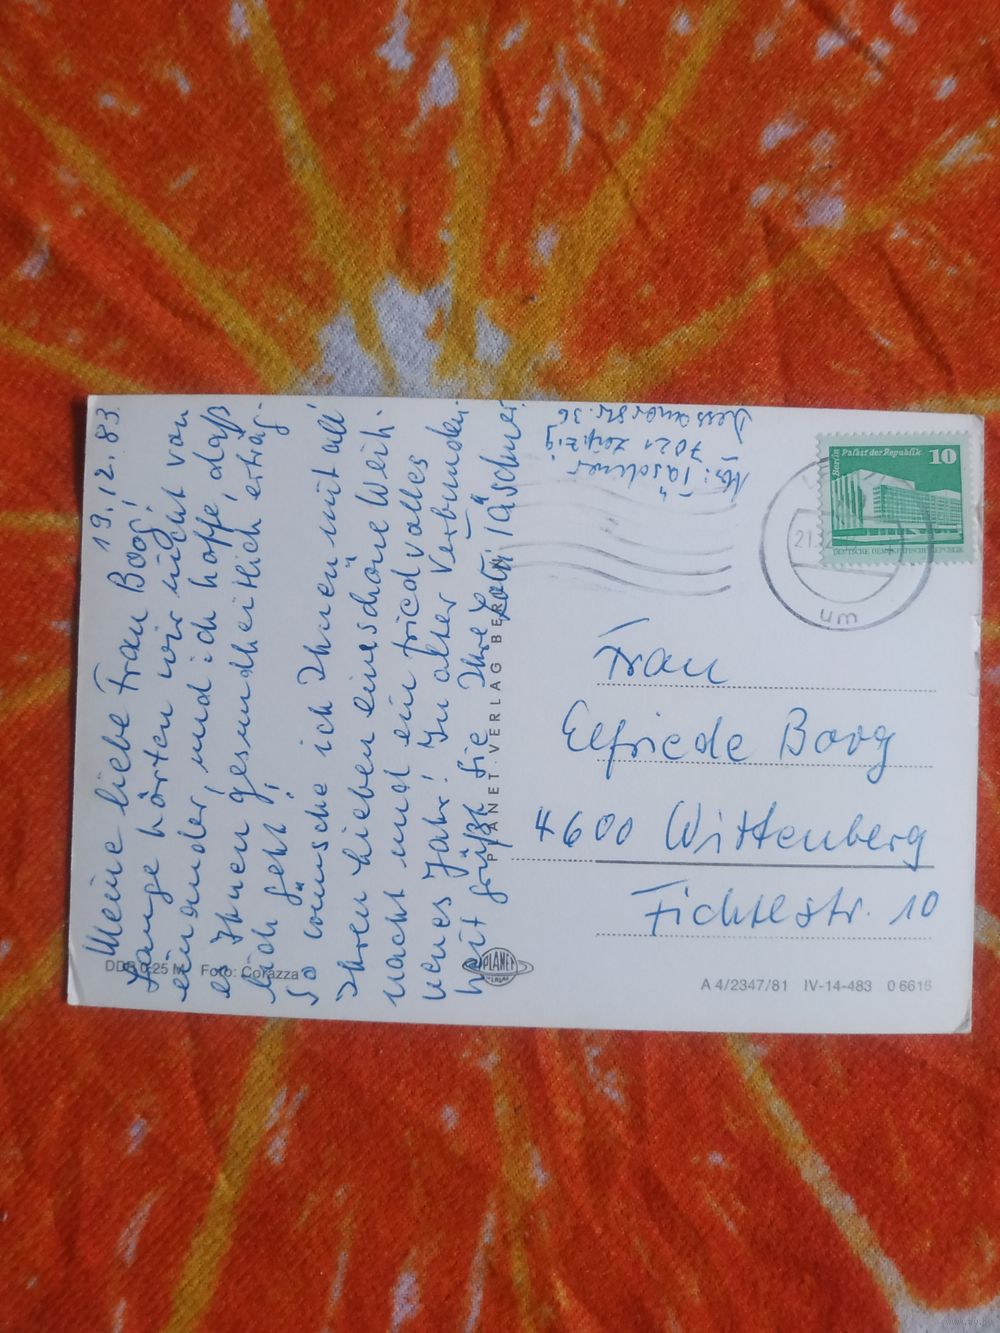 19.12.83.
Meine liebe Frau Boog!
Lange hörten wir nicht von
einander, und ich hoffe, daß
es Ihnen gesundheitlich erträg-
lich geht!
So wünsche ich Ihnen mit all'
Ihren Lieben eine schöne Weih-
nacht und ein friedvolles
neues Jahr! In alter Verbunden-
heit grüßt Sie Ihre Täschner
Täschner
7021 Leipzig
Dessauerstr. 36
Berlin Palast der Republik 10
DEUTSCHE DEMOKRATISCHE REPUBLIK
um
Frau
Elfriede Boog
4600 Wittenberg
Fichtestr. 10
PLANET-VERLAG BERLIN
PLANET
VERLAG
DDR 0.25 M Foto: Corazza
A 4/2347/81 IV-14-483 0 6616